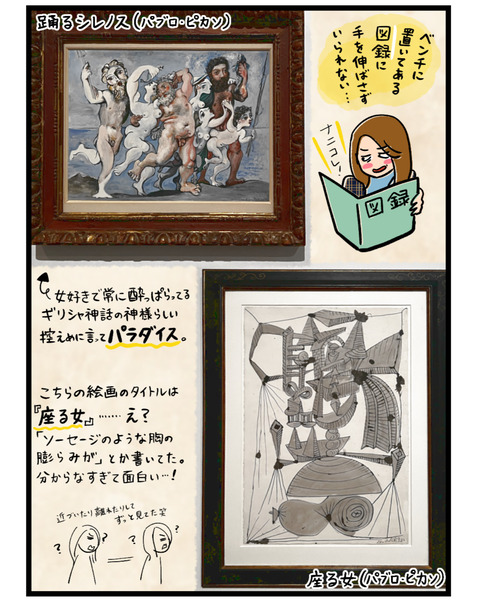 踊るシレノス(パブロ・ピカソ)
ベンチに
置いてある
図録に
手を伸ばさず
いられない…
ナニコレ!
図録
女好きで常に酔っぱらってる
ギリシャ神話の神様らしい
控えめに言ってパラダイス。
こちらの絵画のタイトルは
『座る女』……え?
「ソーセージのような胸の
膨らみが」とか書いてた。
分からなすぎて面白い…!
近づいたり離れたりして
ずっと見てた笑
? ? ? ?
座る女(パブロ・ピカソ)